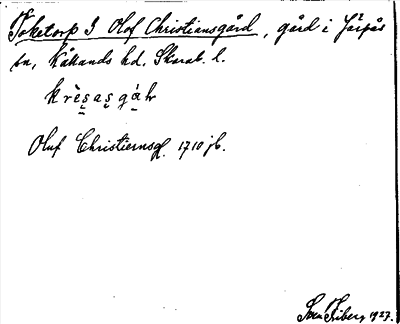 Toketorp 3 Olof Christiansgård, gård i Järpås
sn, Kållands hd. Skarab. l.
krè̱sasgá̱r
Oluf Christiernsg. 1710 jb.
Sven Friberg 1927.